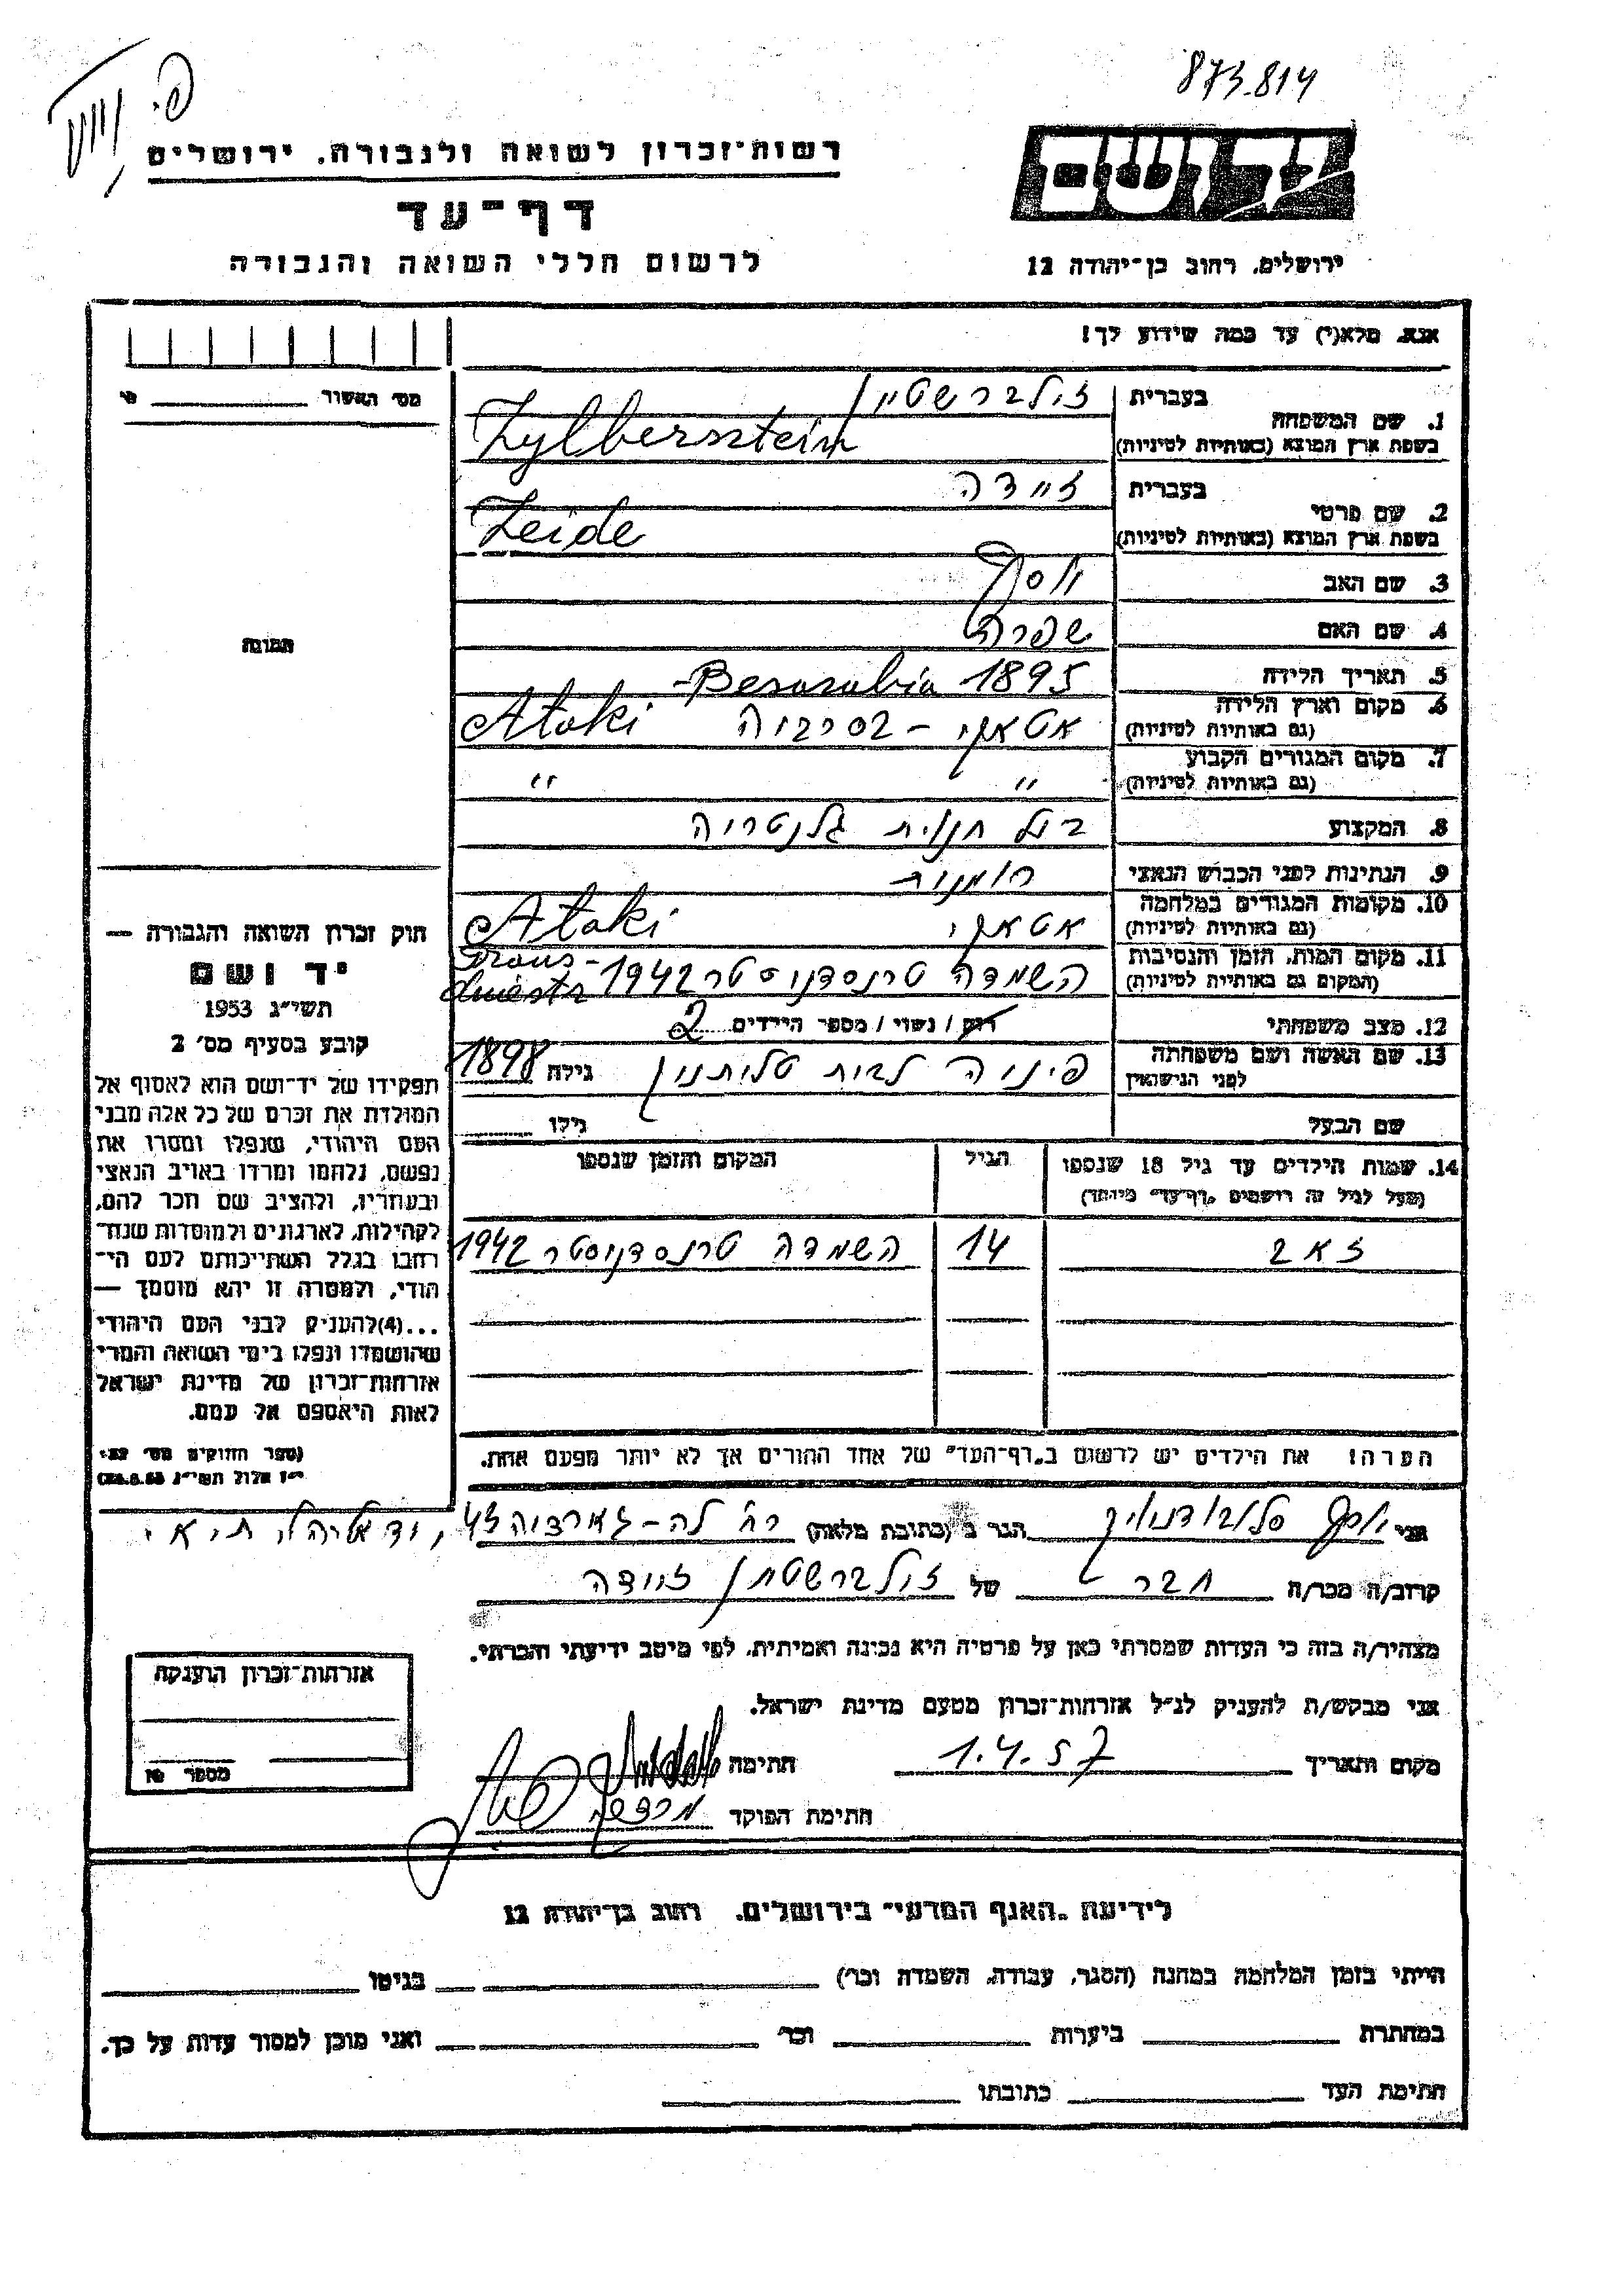 873.814
יד ושם
רשות־זכרון לשואה ולגבורה, ירושלים
דף־עד
לרשום חללי השואה והגבורה
ירושלים, רחוב בן־יהודה 12
אנא, מלא(י) עד כמה שידוע לך!
מס' האשור
1. שם המשפחה
בעברית זילברשטיין
בשפת ארץ המוצא (באותיות לטיניות) Zylbersztein
2. שם פרטי
בעברית זיידה
בשפת ארץ המוצא (באותיות לטיניות) Zeide
3. שם האב יוסף
4. שם האם שפרה
5. תאריך הלידה 1895 Besarabia-
6. מקום וארץ הלידה אטאקי - בסרביה Ataki
(גם באותיות לטיניות)
7. מקום המגורים הקבוע " "
(גם באותיות לטיניות)
8. המקצוע בעל חנות גלנטריה
9. הנתינות לפני הכבוש הנאצי רומנית
10. מקומות המגורים במלחמה אטאקי Ataki
(גם באותיות לטיניות)
11. מקום המות, הזמן והנסיבות השמדה טרנסדניסטר 1942 Trans-dniestr
(המקום גם באותיות לטיניות)
12. מצב משפחתי רוק / נשוי / מספר הילדים 2
13. שם האשה ושם משפחתה
לפני הנישואין גילה 1898
שם הבעל גילו
14. שמות הילדים עד גיל 18 שנספו הגיל המקום והזמן שנספו
(מעל לגיל זה רושמים "דף־עד" מיוחד)
זאב 14 השמדה טרנסדניסטר 1942
הערה: את הילדים יש לרשום ב"דף־העד" של אחד ההורים אך לא יותר מפעם אחת.
תמונה
חוק זכרון השואה והגבורה —
יד ושם
תשי"ג 1953
קובע בסעיף מס' 2
תפקידו של יד־ושם הוא לאסוף אל
המולדת את זכרם של כל אלה מבני
העם היהודי, שנפלו ומסרו את
נפשם, נלחמו ומרדו באויב הנאצי
ובעוזריו, ולהציב שם וזכר להם,
לקהילות, לארגונים ולמוסדות שנח־
רבו בגלל השתייכותם לעם הי־
הודי, ולמטרה זו יהא מוסמך —
...(4) להעניק לבני העם היהודי
שהושמדו ונפלו בימי השואה והמרי
אזרחות־זכרון של מדינת ישראל
לאות היאספם אל עמם.
(ספר החוקים מס' 132
י"ז אלול תשי"ג 28.8.53)
אני יוסף הגר ב (כתובת מלאה) רח' לה-גוארדיה 43, יד אליהו, ת"א
קרוב/ה מכר/ה חבר של זילברשטיין זיידה
מצהיר/ה בזה כי העדות שמסרתי כאן על פרטיה היא נכונה ואמיתית, לפי מיטב ידיעתי והכרתי.
אני מבקש/ת להעניק לנ"ל אזרחות־זכרון מטעם מדינת ישראל.
מקום ותאריך 1.4.57 חתימה
חתימת הפוקד
אזרחות־זכרון הוענקה
מספר
לידיעת "האגף המדעי" בירושלים, רחוב בן־יהודה 12
הייתי בזמן המלחמה במחנה (הסגר, עבודה, השמדה וכו') בגיטו
במחתרת ביערות וכו' ואני מוכן למסור עדות על כך.
חתימת העד כתובתו